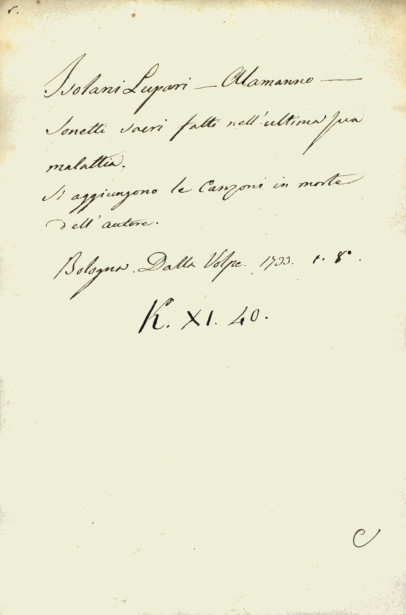 Isolani Lupari — Alamanno —
Sonetti sacri fatti nell'ultima sua
malattia.
Si aggiungono le Canzoni in morte
dell'autore.
Bologna. Dalla Volpe. 1733. 8°.
K. XI. 40.